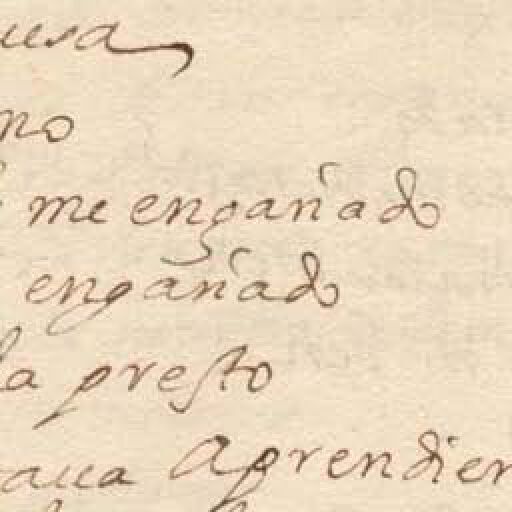 usa
no
me engañado
engañado
la presto
aua Aprendien